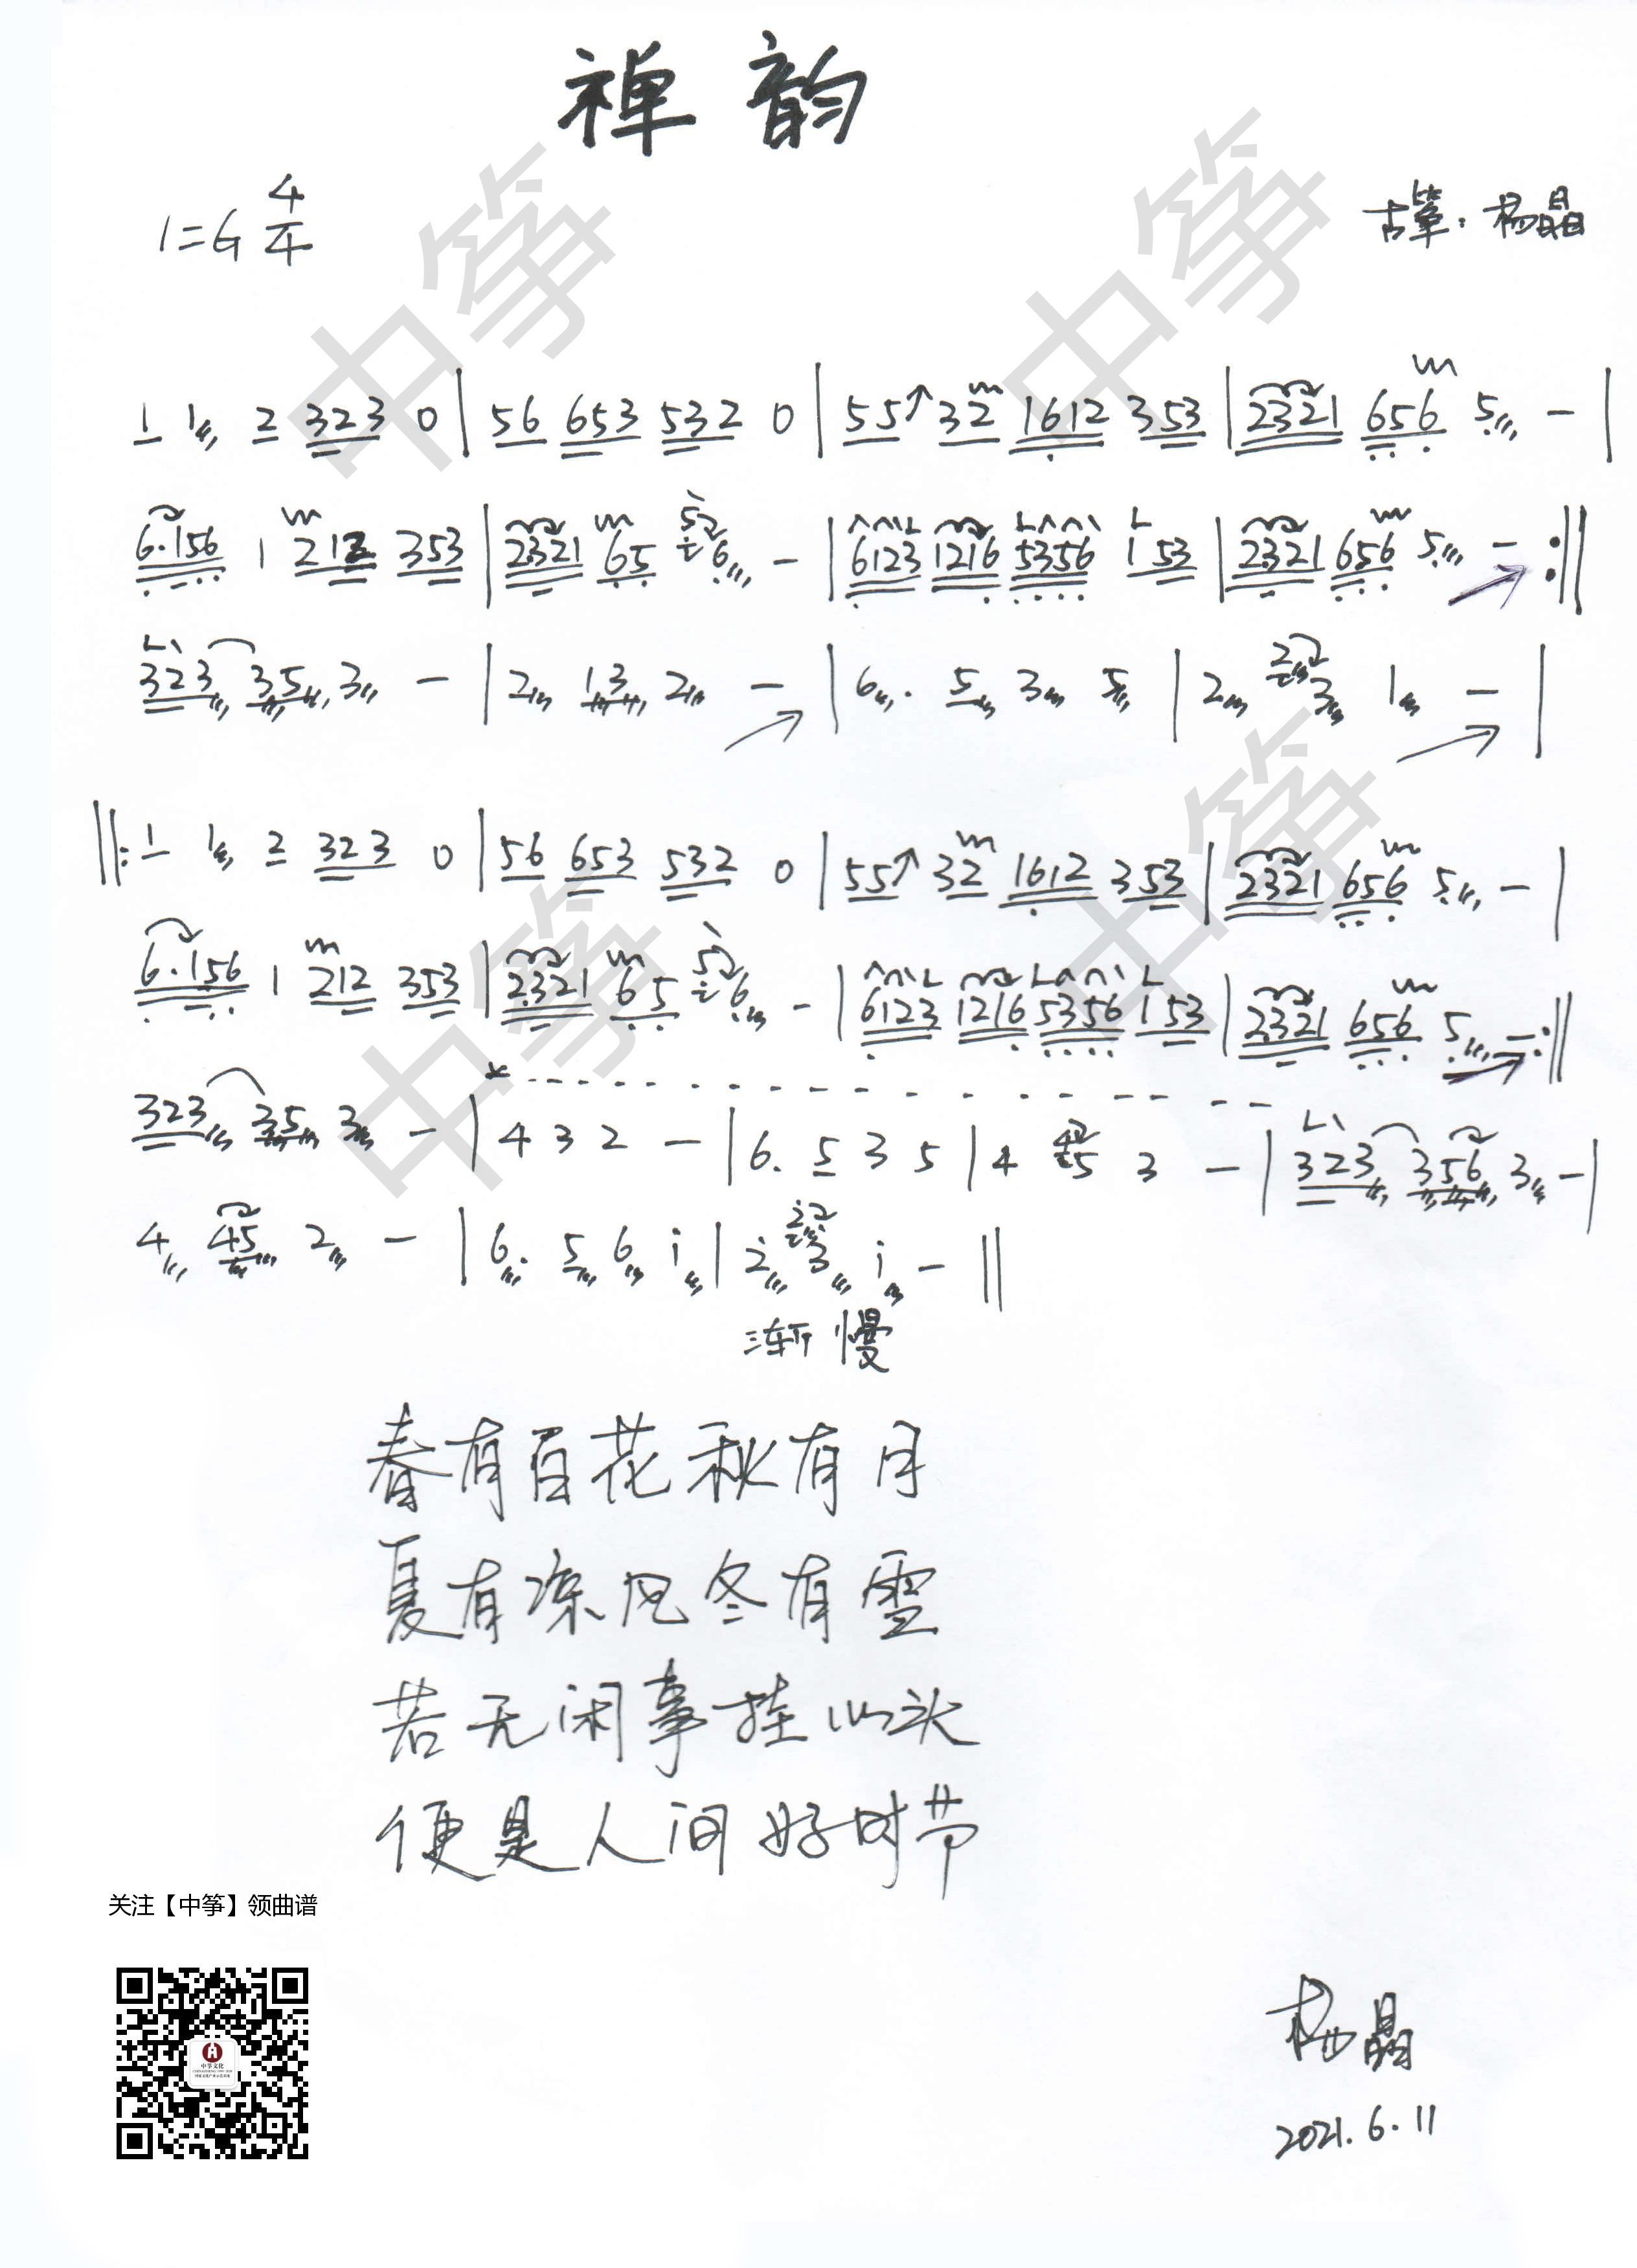 禅韵
1=G 4/4
古筝：杨晶
1 1 2 323 0 | 56 653 532 0 | 55↗ 32 1612 353 | 2321 656 5 - |
6.156 1 212 353 | 2321 65 6 - | 6123 1216 5356 1 53 | 2321 656 5 - :||
323 35 3 - | 2 13 2 - | 6. 5 3 5 | 2 3 1 - |
||: 1 1 2 323 0 | 56 653 532 0 | 55↗ 32 1612 353 | 2321 656 5 - |
6.156 1 212 353 | 2321 65 6 - | 6123 1216 5356 1 53 | 2321 656 5 - :||
323 35 3 - | 4 3 2 - | 6. 5 3 5 | 4 5 3 - | 323 356 3 - |
4 45 2 - | 6. 5 6 i | 2 3 i - ||
渐慢
春有百花秋有月
夏有凉风冬有雪
若无闲事挂心头
便是人间好时节
关注【中筝】领曲谱
中筝文化
杨晶
2021.6.11
中筝
中筝
中筝
中筝